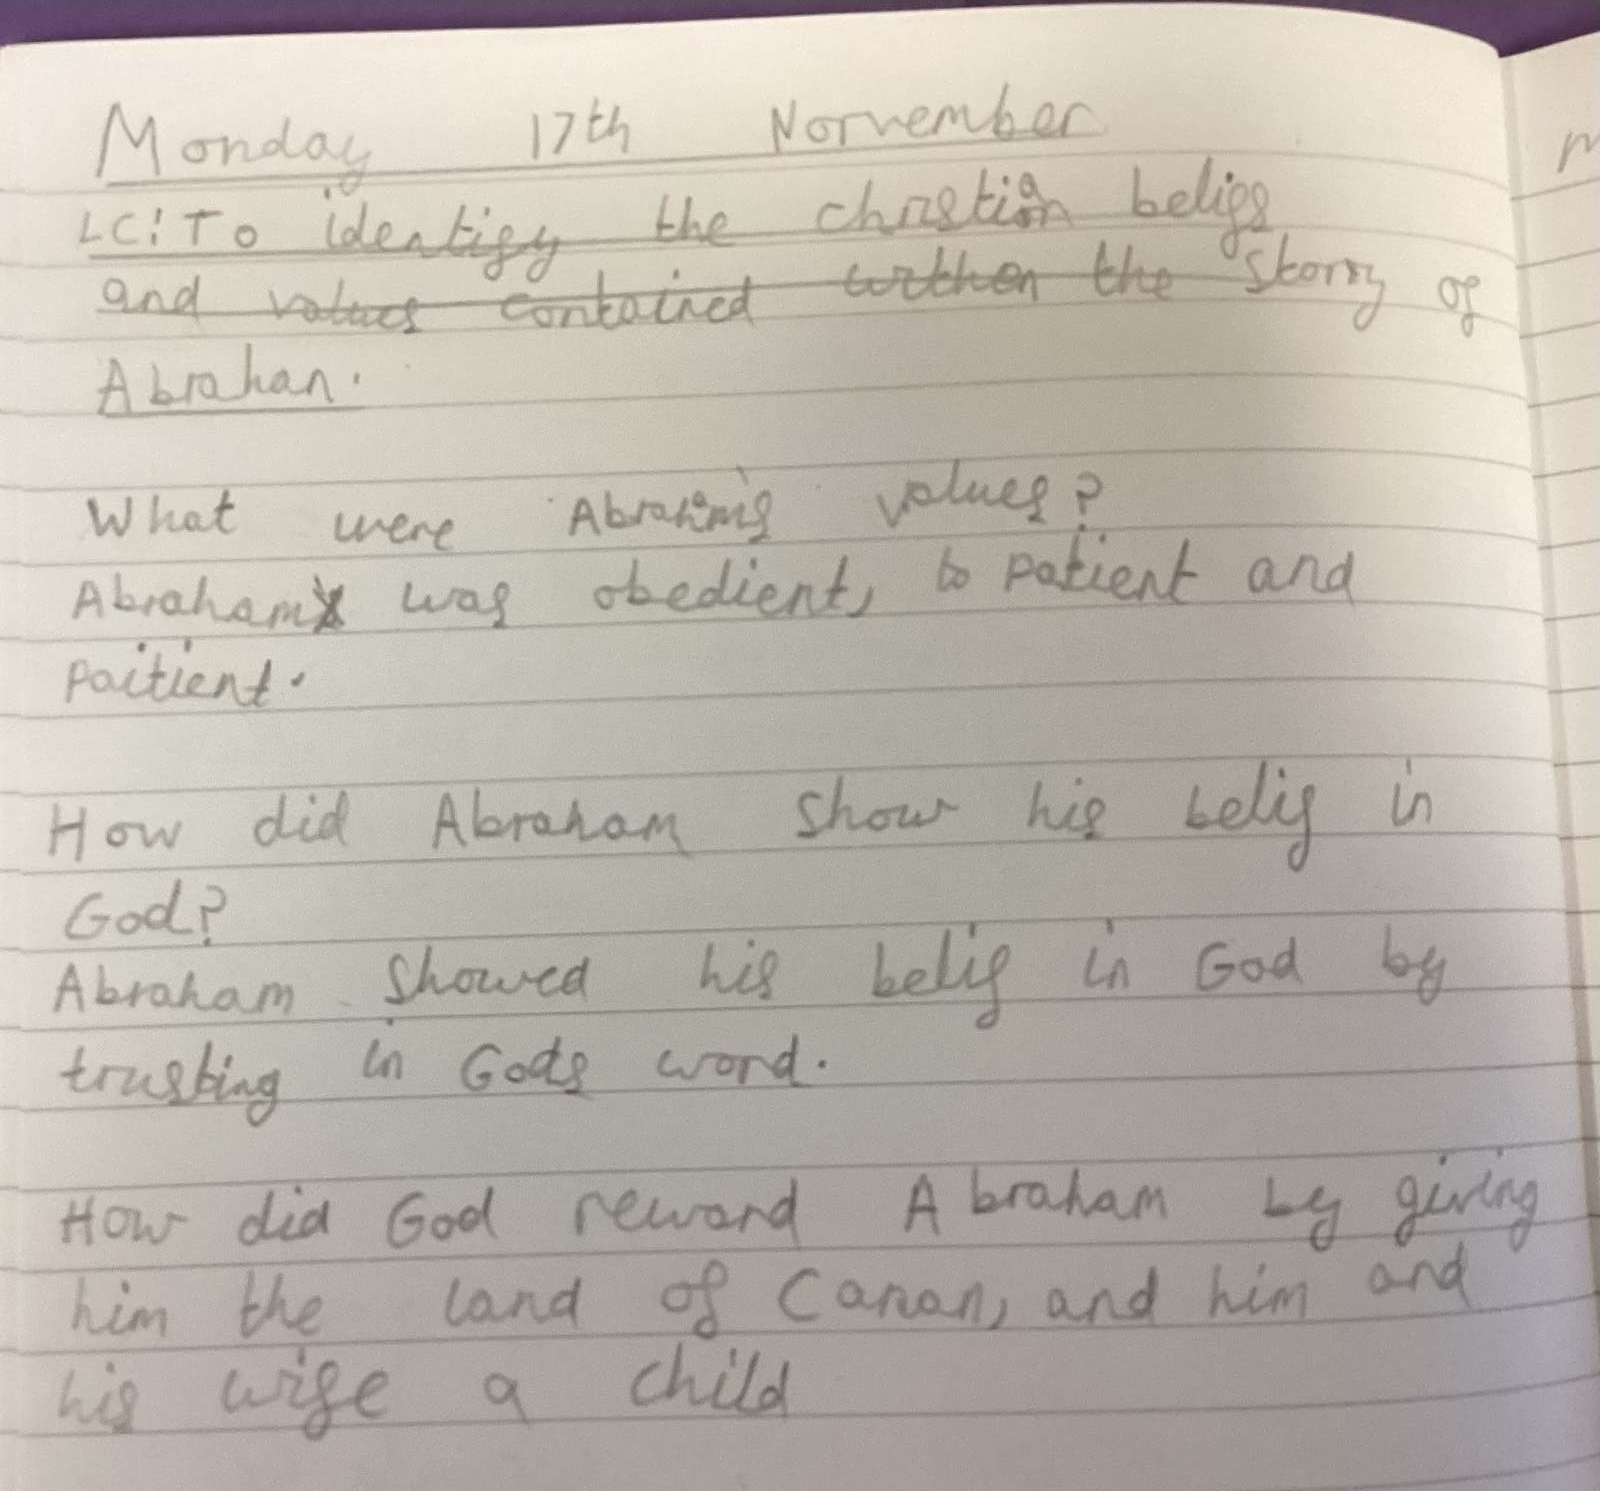 Monday 17th Norvember
LC: To identify the christian belifs
and values contained withen the storry of
Abrahan.
What were Abraham's values?
Abraham was obedient, to patient and
paitient.
How did Abraham show his belif in
God?
Abraham showed his belif in God by
trusting in Gods word.
How did God reward Abraham by giving
him the land of Canan, and him and
his wife a child